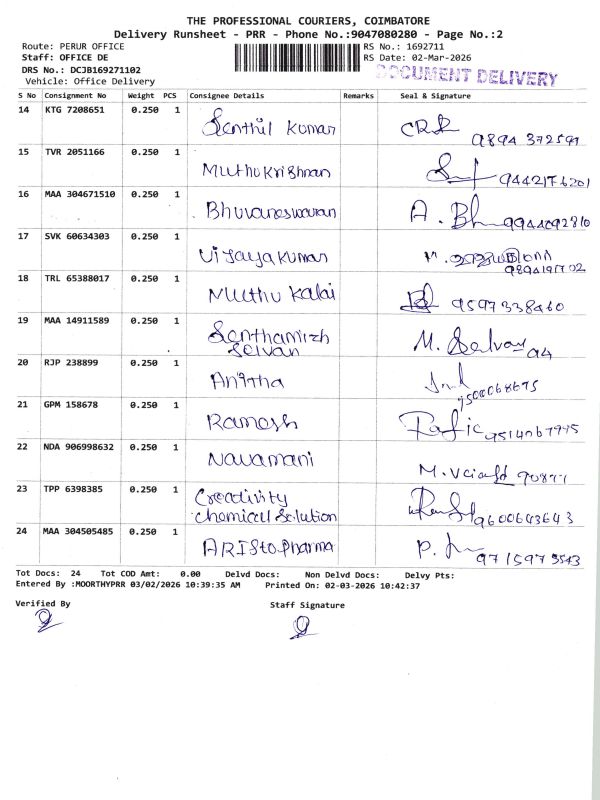 THE PROFESSIONAL COURIERS, COIMBATORE
Delivery Runsheet - PRR - Phone No.:9047080280 - Page No.:2
Route: PERUR OFFICE
RS No.: 1692711
Staff: OFFICE DE
RS Date: 02-Mar-2026
DRS No.: DCJB169271102
DOCUMENT DELIVERY
Vehicle: Office Delivery
S No Consignment No Weight PCS Consignee Details Remarks Seal & Signature
14 KTG 7208651 0.250 1 Senthil Kumar
15 TVR 2051166 0.250 1 Muthukrishnan 9442176201
16 MAA 304671510 0.250 1 Bhuvaneswaran A. 9944092810
17 SVK 60634303 0.250 1 Vijayakumar
18 TRL 65388017 0.250 1 Muthu Kalai 9597338460
19 MAA 14911589 0.250 1 Senthamizh
Selvan M. Selvan
20 RJP 238899 0.250 1 Anitha
21 GPM 158678 0.250 1 Ramesh Rafic
22 NDA 906998632 0.250 1 Navamani
23 TPP 6398385 0.250 1 Creativity
Chemical Solution 9600643643
24 MAA 304505485 0.250 1 ARISto pharma 9715973543
Tot Docs: 24 Tot COD Amt: 0.00 Delvd Docs: Non Delvd Docs: Delvy Pts:
Entered By :MOORTHYPRR 03/02/2026 10:39:35 AM Printed On: 02-03-2026 10:42:37
Verified By Staff Signature